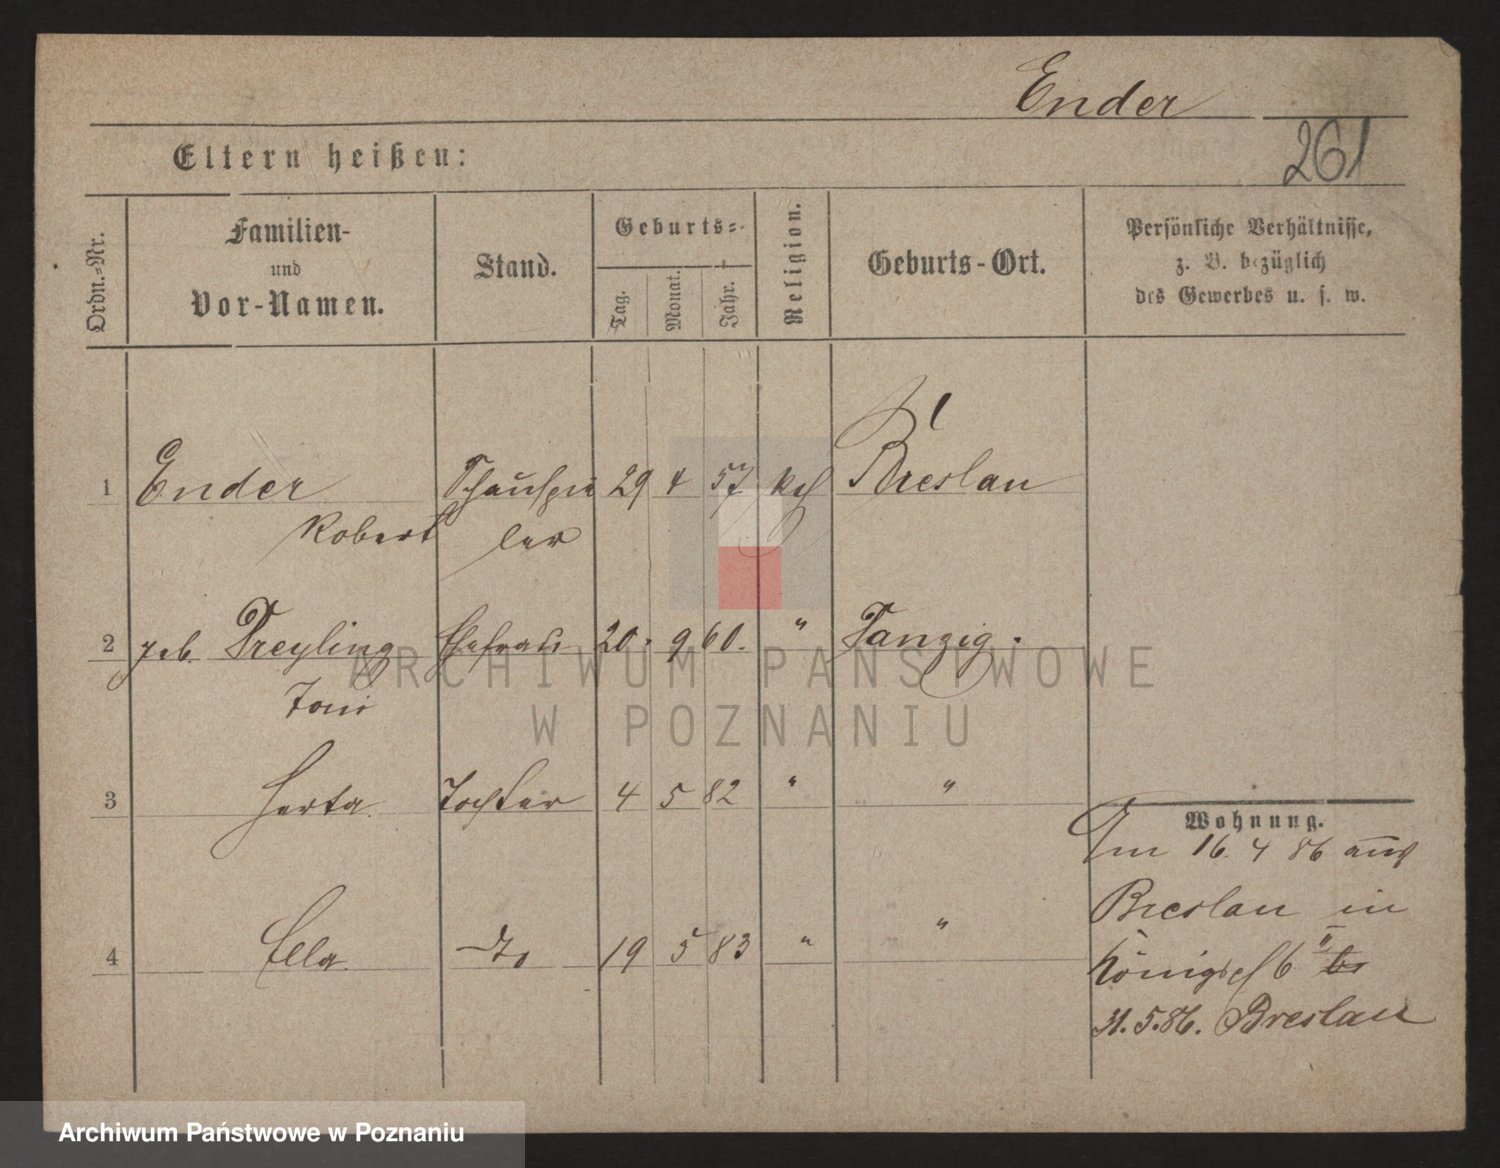 Ender
261
Eltern heißen:
Ordn.-Nr.
Familien-
und
Vor-Namen.
Stand.
Geburts-
Tag.
Monat.
Jahr.
Religion.
Geburts-Ort.
Persönliche Verhältnisse,
z. B. bezüglich
des Gewerbes u. s. w.
1 Ender Schauspie 29 4 57 kth Breslau
Robert ler
2 geb. Dreyling Ehefrau 20. 9 60. " Danzig.
Toni
3 Herta. Tochter 4 5 82 " "
Wohnung.
Am 16. 4 86 aus
4 Ella. do 19 5 83 " "
Breslau in
Königsch 6 II
31. 5. 86. Breslau
ARCHIWUM PAŃSTWOWE
W POZNANIU
Archiwum Państwowe w Poznaniu